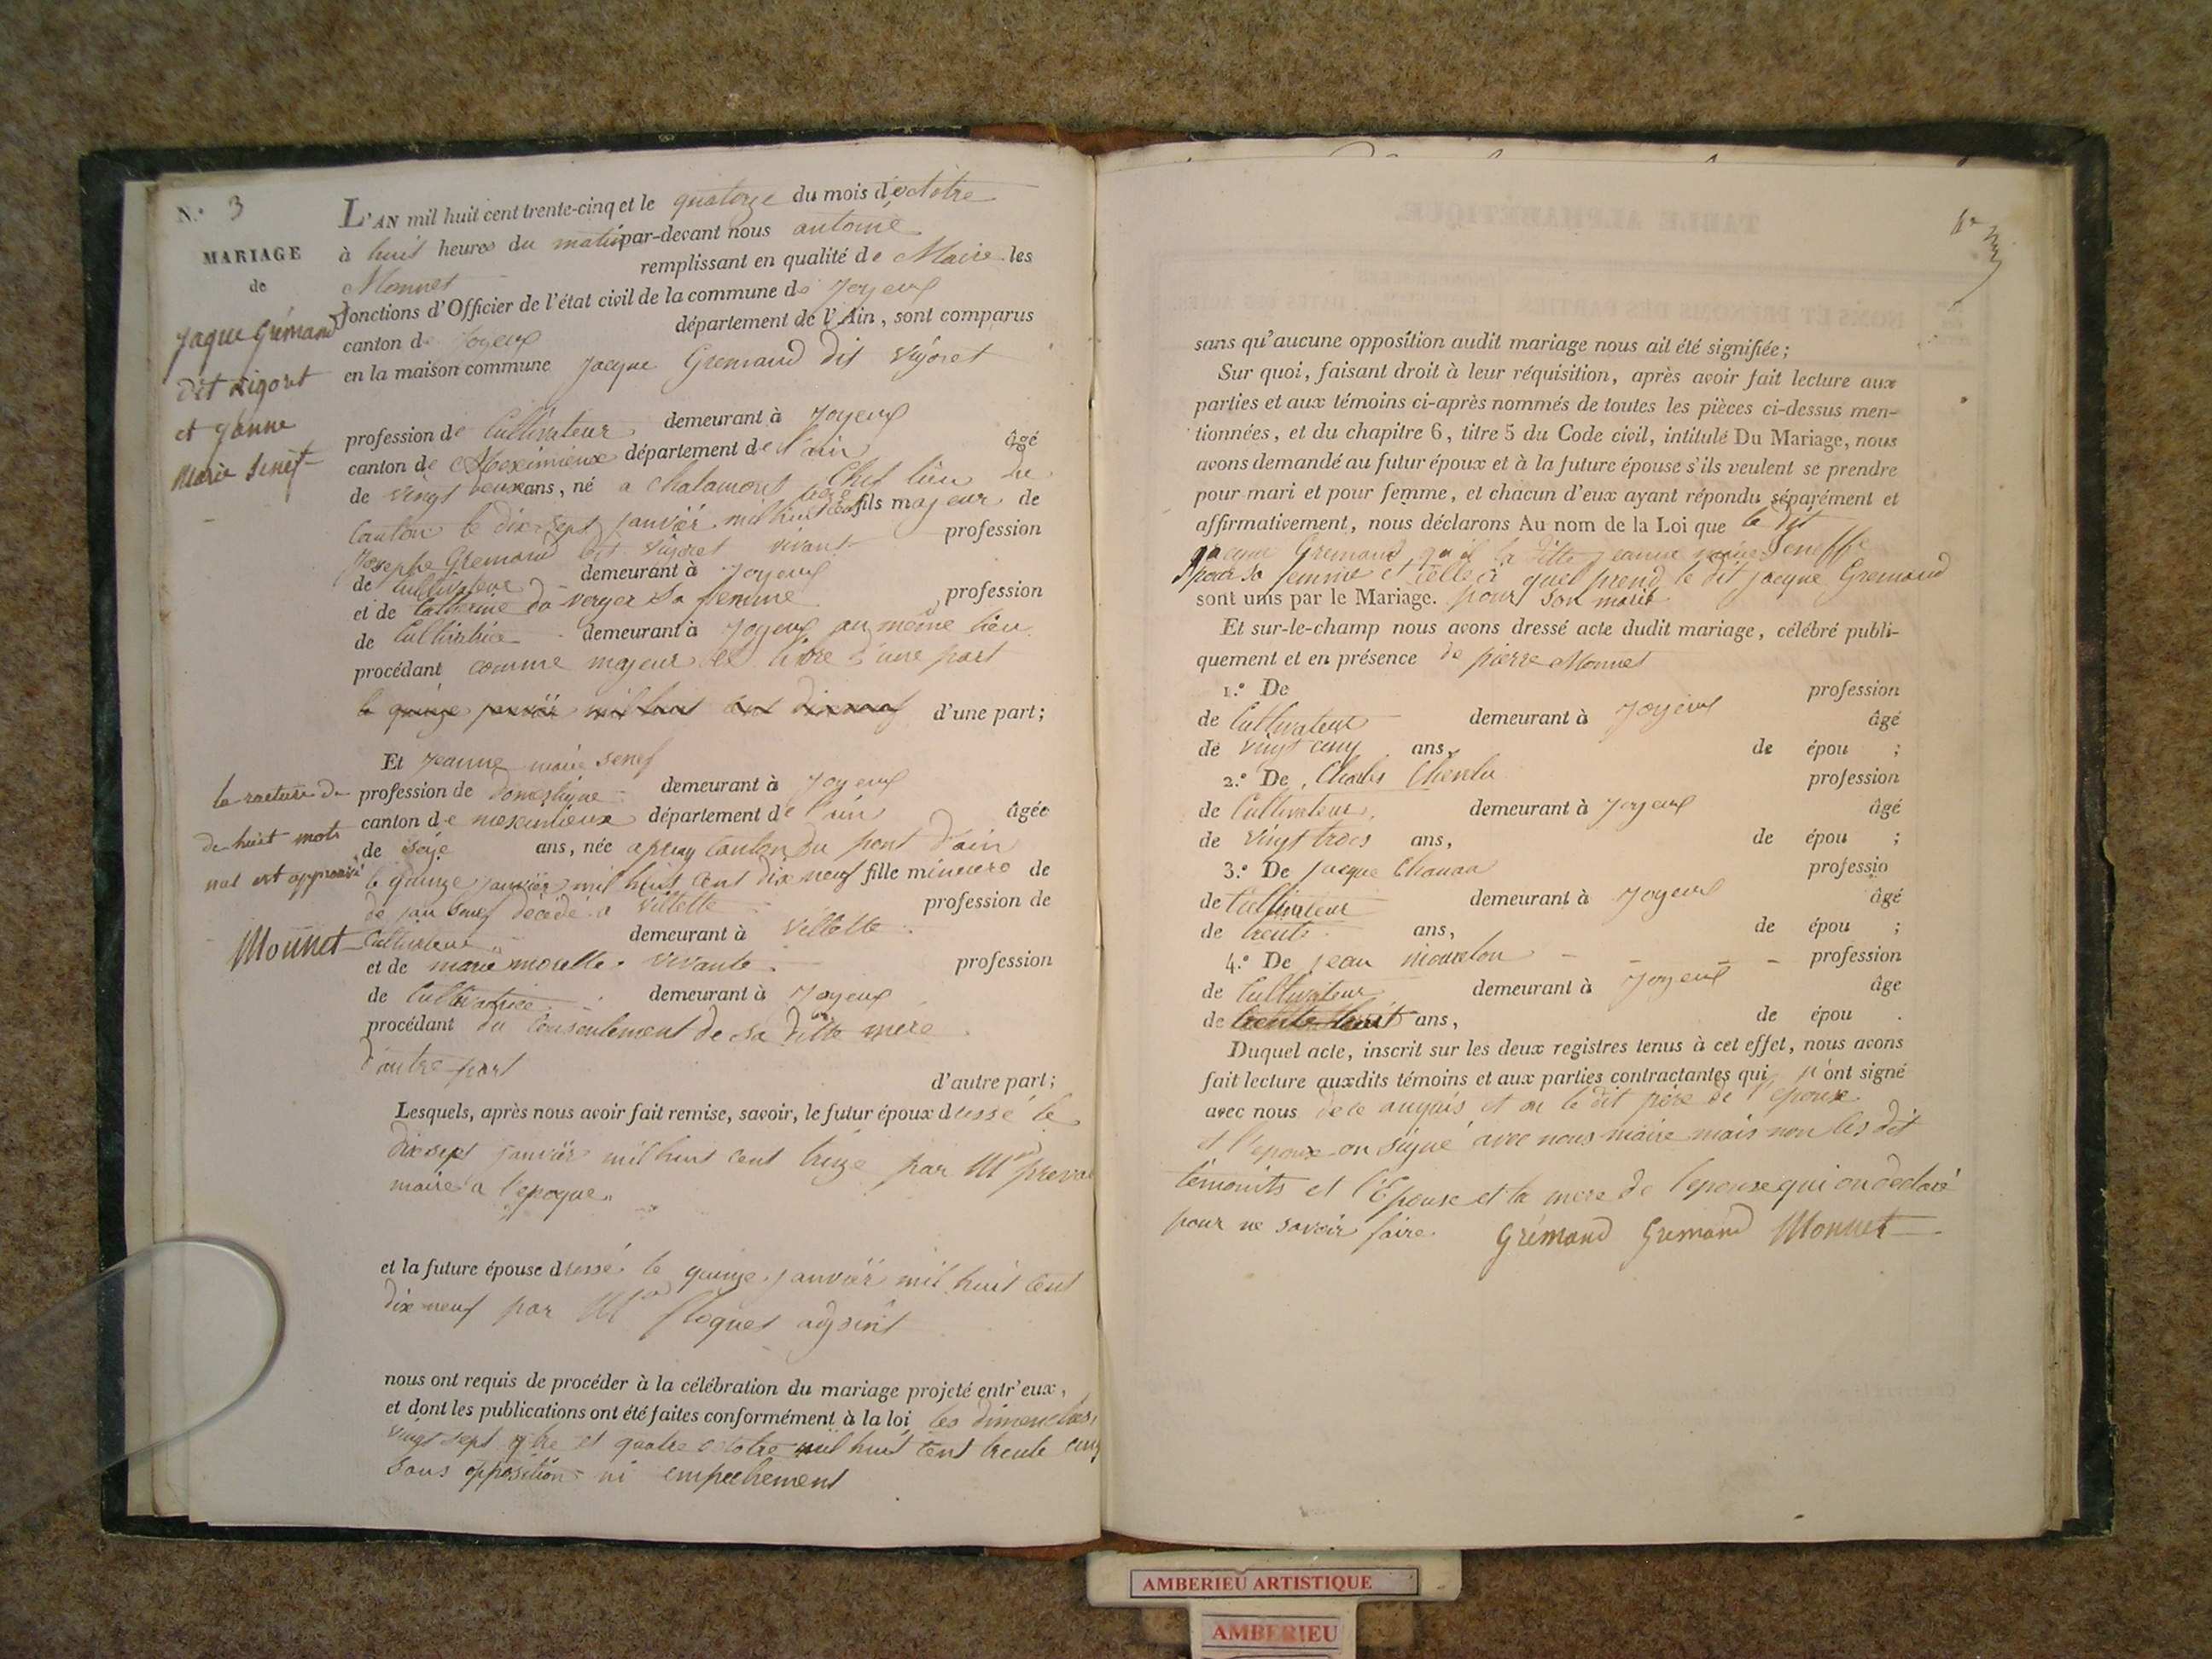 N.° 3
MARIAGE
de
Jaque Grémaud
dit Vigoret
et Janne
Marie Senef
L'AN mil huit cent trente-cinq et le quatorze du mois d'octobre
à huit heures du matin par-devant nous antoine
Monnet remplissant en qualité de Maire les
fonctions d'Officier de l'état civil de la commune de Joyeux
canton de Joyeux département de l'Ain, sont comparus
en la maison commune Jacque Gremaud dit Vigoret
profession de Cultivateur demeurant à Joyeux
canton de Meximieux département de l'ain âgé
de vingt deux ans, né a Chalamont Chef lieu de
Canton le dix sept janvier mil huit cent treize fils majeur de
Josephe Gremaud dit Vigoret vivant profession
de Cultivateur demeurant à Joyeux
et de Catherine du verger sa femme profession
de Cultivatrice demeurant à Joyeux au même lieu
procédant comme majeur et libre d'une part
le quinze janvier mil huit cent dix neuf d'une part;
Et Jeanne marie senef
profession de domestique demeurant à Joyeux
canton de meximieux département de l'ain âgée
de seize ans, née a priay Canton du pont d'ain
le quinze janvier mil huit cent dix neuf fille mineure de
de jan senef décédé a Villette profession de
Cultivateur demeurant à Villette
et de marie morelle vivante profession
de Cultivatrice demeurant à Joyeux
procédant du Consentement de sa ditte mere
d'autre part
d'autre part;
la rature de
de huit mots
nul est approuvé
Monnet
Lesquels, après nous avoir fait remise, savoir, le futur époux dressé le
dix sept janvier mil huit cent treize par Mr preval
maire a l'epoque
et la future épouse dressé le quinze janvier mil huit Cent
dix neuf par Mr floquet adjoint
nous ont requis de procéder à la célébration du mariage projeté entr'eux,
et dont les publications ont été faites conformément à la loi les dimenches
vingt sept 7bre et quatre octobre mil huit cent trente cinq
sans opposition ni empechement
sans qu'aucune opposition audit mariage nous ait été signifiée;
Sur quoi, faisant droit à leur réquisition, après avoir fait lecture aux
parties et aux témoins ci-après nommés de toutes les pièces ci-dessus men-
tionnées, et du chapitre 6, titre 5 du Code civil, intitulé Du Mariage, nous
avons demandé au futur époux et à la future épouse s'ils veulent se prendre
pour mari et pour femme, et chacun d'eux ayant répondu séparément et
affirmativement, nous déclarons Au nom de la Loi que le dit
Jacque Gremaud qu'il la ditte jeanne marie Seneffe
pour sa femme et celle ci quel prend le dit jacque Gremaud
sont unis par le Mariage. pour son marit
Et sur-le-champ nous avons dressé acte dudit mariage, célébré publi-
quement et en présence de pierre Monnet
1.° De profession
de Cultivateur demeurant à Joyeux âgé
de vingt cinq ans, de épou ;
2.° De Charles profession
de Cultivateur demeurant à Joyeux âgé
de vingt trois ans, de épou ;
3.° De Jacque professio
de Cultivateur demeurant à Joyeux âgé
de trente ans, de épou ;
4.° De jean profession
de Cultivateur demeurant à Joyeux âge
de trente huit ans, de épou .
Duquel acte, inscrit sur les deux registres tenus à cet effet, nous avons
fait lecture auxdits témoins et aux parties contractantes qui n'ont signé
avec nous et le dit père de l'epoux
et l'epoux on signé avec nous maire mais non les dit
témoints et l'Epouse et la mere de l'epouse qui on declaré
pour ne savoir faire. Grémaud Gremaud Monnet
AMBERIEU ARTISTIQUE
AMBERIEU